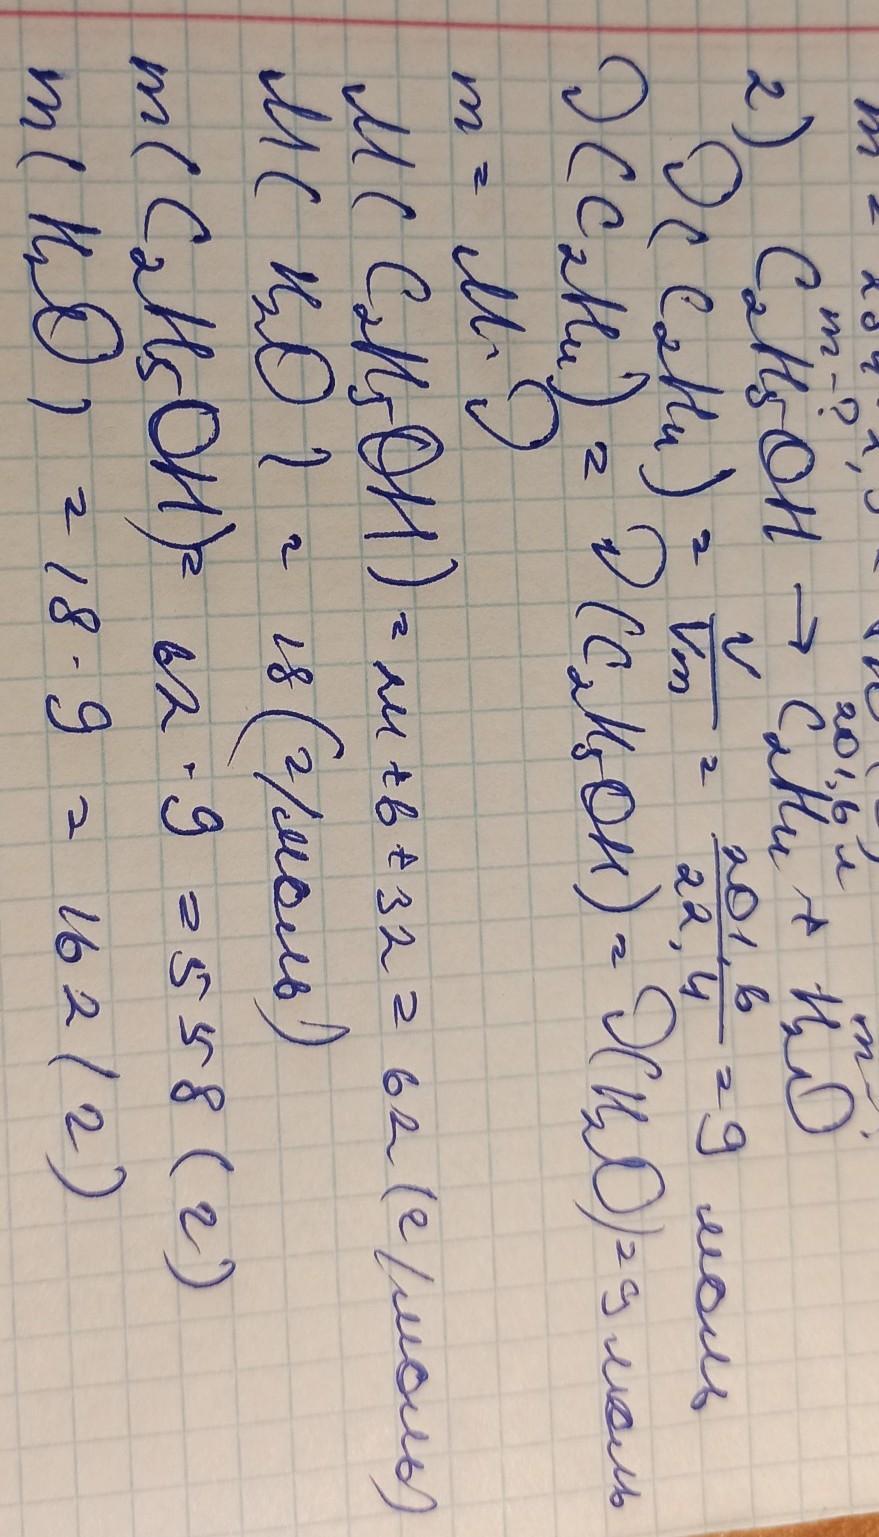 m - ? 201,6 л m - ?
2) C₂H₅OH → C₂H₄ + H₂O
ν(C₂H₄) = V/Vm = 201,6/22,4 = 9 моль
ν(C₂H₄) = ν(C₂H₅OH) = ν(H₂O) = 9 моль
m = M · ν
M(C₂H₅OH) = 24 + 6 + 32 = 62 (г/моль)
M(H₂O) = 18 (г/моль)
m(C₂H₅OH) = 62 · 9 = 558 (г)
m(H₂O) = 18 · 9 = 162 (г)